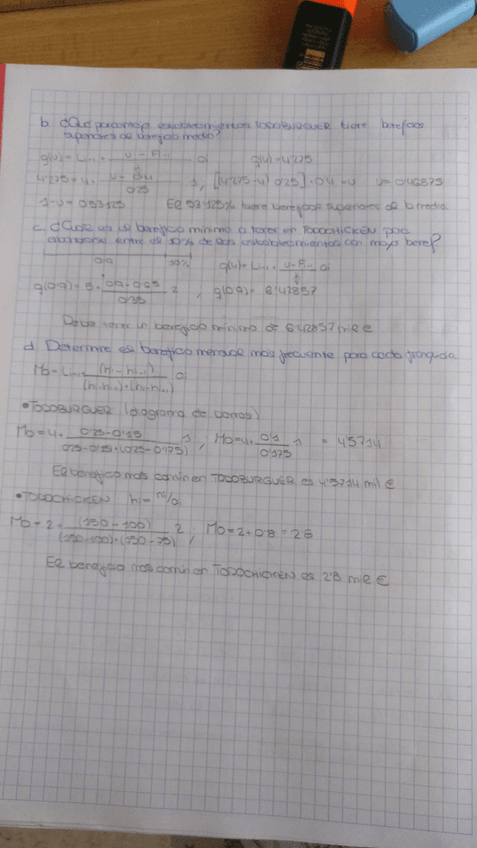 b. ¿Qué porcentaje establecimientos TODOBURGUER tiene beneficios
superiores al beneficio medio?
g(u) = Li-1 + (u - Fi-1)/fi ai    g(u) = 4'275
4'275 = 4 + (u - 0'4)/0'25 1, [(4'275-4) 0'25] + 0'4 = u    u = 0'46875
1-u = 0'53125    El 53'125% tiene beneficios superiores a la media
c. ¿Cuál es el beneficio mínimo a tener en TODOCHICKEN para
encontrarse entre el 10% de los establecimientos con mayor benef?
0'9    10%    g(u) = Li-1 + (u - Fi-1)/fi ai
g(0'9) = 5 + (0'9 - 0'65)/0'35 2, g(0'9) = 6'42857
Debe tener un beneficio mínimo de 6'42857 mil €
d. Determine el beneficio mensual más frecuente para cada franquicia
Mo = Li-1 + (hi - hi-1)/((hi-hi-1)+(hi-hi+1)) ai
• TODOBURGUER (diagrama de barras)
Mo = 4 + (0'25 - 0'15)/(0'25-0'15+(0'25-0'175)) 1, Mo = 4 + 0'1/0'175 1 = 4'5714
El beneficio más común en TODOBURGUER es 4'5714 mil €
• TODOCHICKEN hi = ni/ai
Mo = 2 + (150 - 100)/((150-100)+(150-75)) 2, Mo = 2 + 0'8 = 2'8
El beneficio más común en TODOCHICKEN es 2'8 mil €